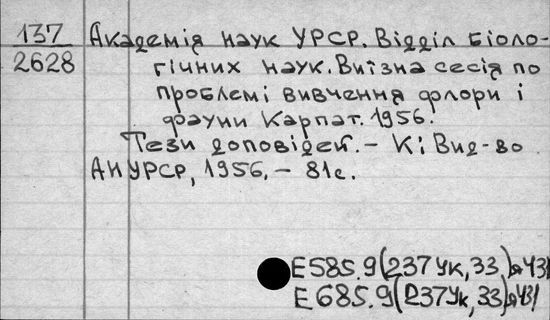 137
2628
Академія наук УРСР. Відділ біоло-
гічних наук. Виїзна сесія по
проблемі вивчення флори і
фауни Карпат. 1956.
Тези доповідей. – К; Вид-во
АН УРСР, 1956. – 81с.
Е585.9(237Ук,33)я431
Е685.9(237Ук,33)я431